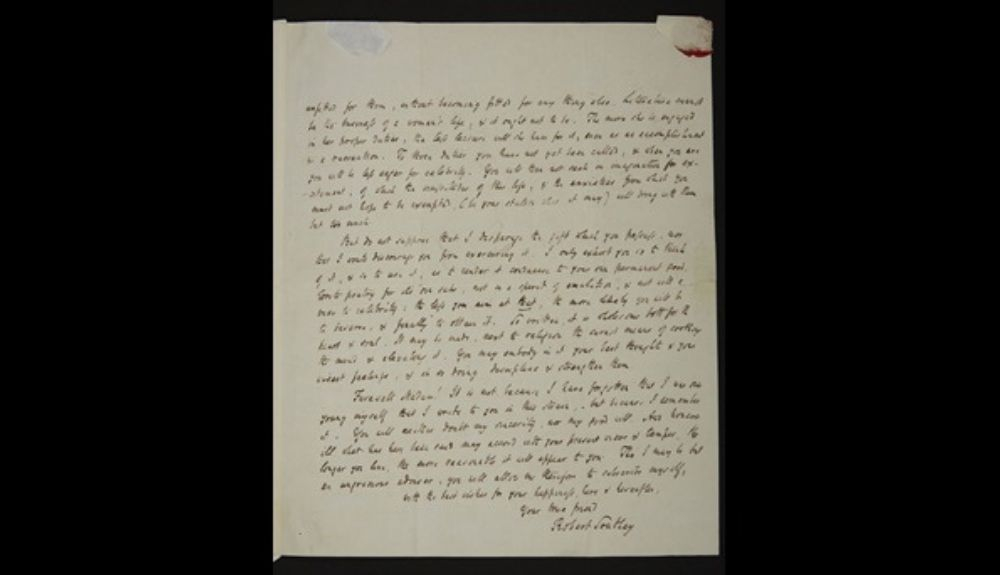 unfitted for them, without becoming fitted for any thing else. Literature cannot
be the business of a woman's life, & it ought not to be. The more she is engaged
in her proper duties, the less leisure will she have for it, even as an accomplishment
& a recreation. To those duties you have not yet been called, & when you are
you will be less eager for celebrity. You will then not seek in imagination for ex-
-citement, of which the vicissitudes of this life, & the anxieties from which you
must not hope to be exempted, (be your station what it may) will bring with them
but too much.
But do not suppose that I disparage the gift which you possess, nor
that I would discourage you from exercising it. I only exhort you so to think
of it, & so to use it, as to render it conducive to your own permanent good.
Write poetry for its own sake, not in a spirit of emulation, & not with a
view to celebrity: the less you aim at that, the more likely you will be
to deserve, & finally to obtain it. So written, it is wholesome both for the
heart & soul. It may be made, next to religion the surest means of soothing
the mind & elevating it. You may embody in it your best thoughts & your
wisest feelings, & in so doing discipline & strengthen them.
Farewell Madam! It is not because I have forgotten that I was once
young myself that I write to you in this strain, - but because I remember
it. You will neither doubt my sincerity, nor my good will. And however
ill what has here been said may accord with your present views & temper, the
longer you live, the more reasonable it will appear to you. Tho I may be but
an ungracious adviser, you will allow me therefore to subscribe myself,
with the best wishes for your happiness, here & hereafter,
Your true friend
Robert Southey